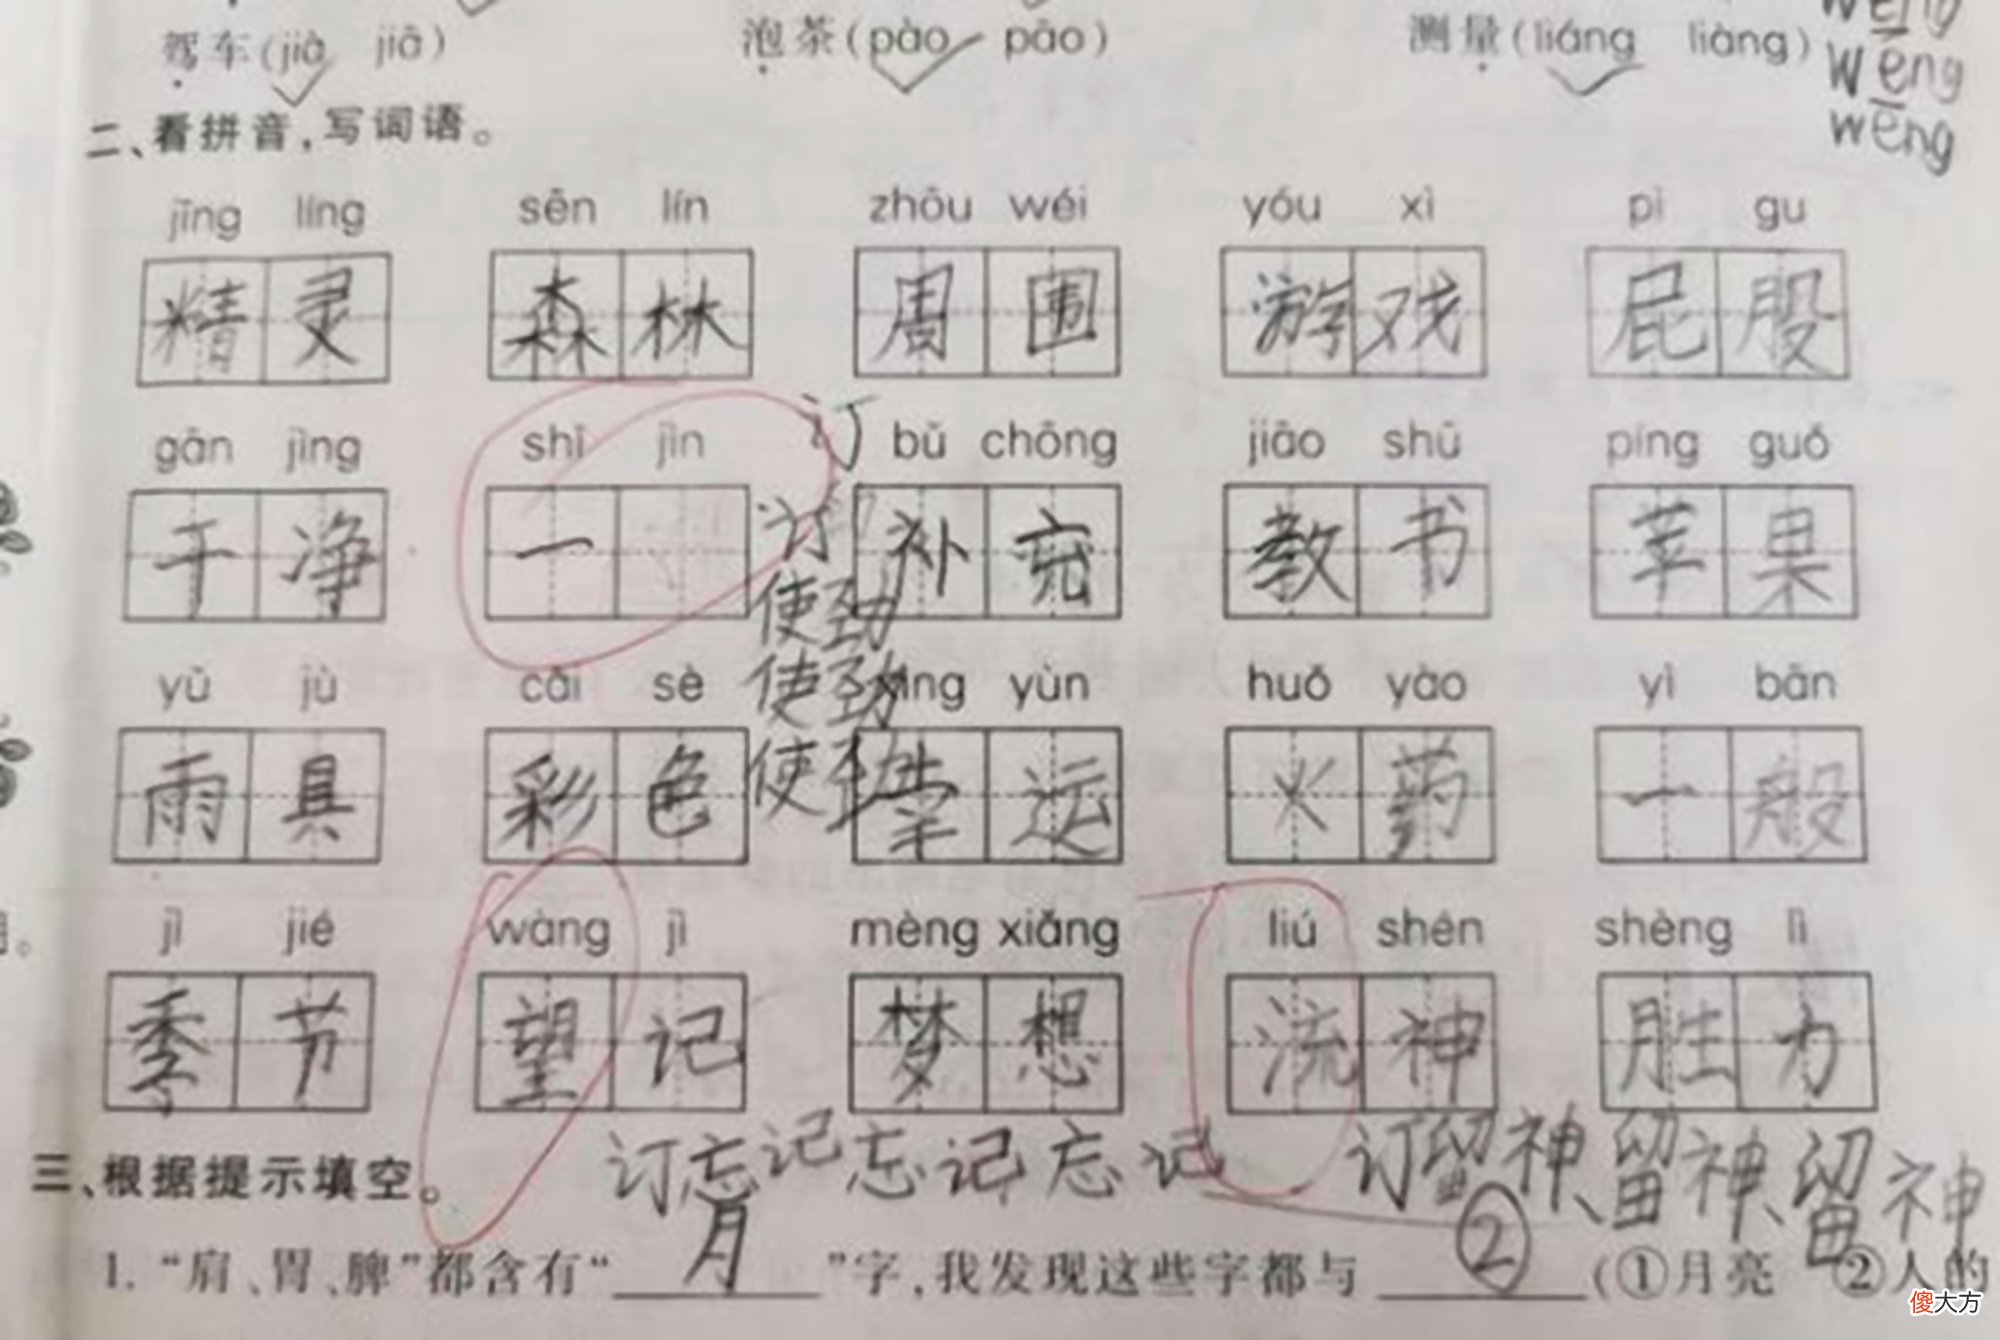 驾车(jià jiā) 泡茶(pào pāo) 测量(liáng liàng) wēng
wēng
wēng
二、看拼音,写词语。
jīng líng sēn lín zhōu wéi yóu xì pì gu
精灵 森林 周围 游戏 屁股
gān jìng shǐ jìn 订 bǔ chōng jiāo shū píng guǒ
干净 一 订 补充 教书 苹果
使劲
使劲
yǔ jù cǎi sè xìng yùn huǒ yào yì bān
雨具 彩色 使劲 幸运 火药 一般
jì jié wàng jì mèng xiǎng liú shén shèng lì
季节 望记 梦想 流神 胜力
订忘记忘记忘记 订留神、留神、留神
三、根据提示填空。
1. “肩、胃、脾”都含有“月”字,我发现这些字都与②(①月亮 ②人的
傻大方